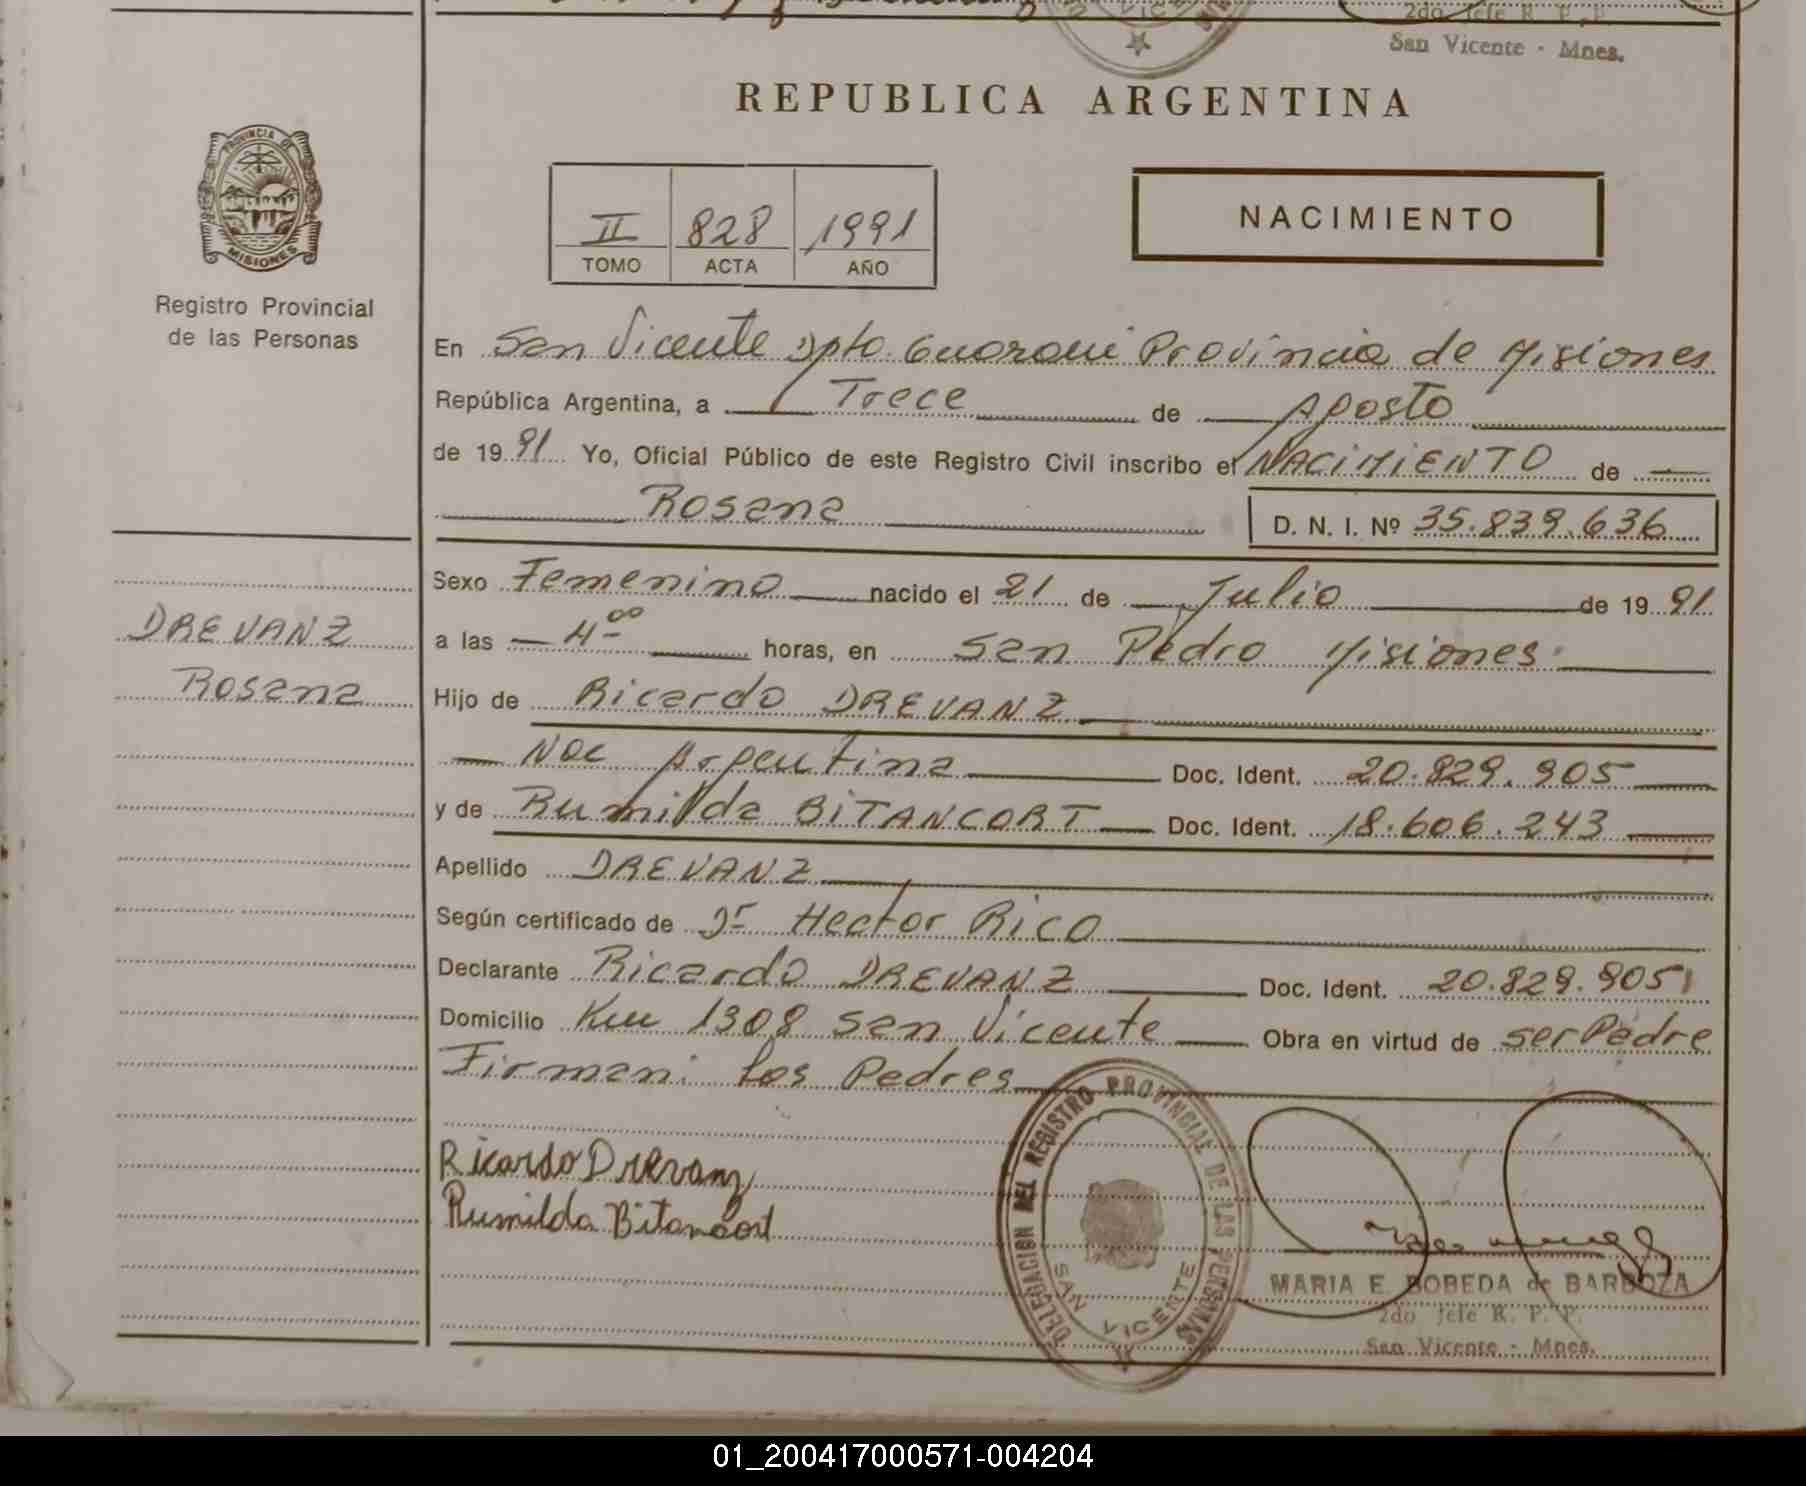 2do Jefe R. P. P.
San Vicente - Mnes.
REPUBLICA ARGENTINA
PROVINCIA DE
MISIONES
Registro Provincial
de las Personas
II 828 1991
TOMO ACTA AÑO
NACIMIENTO
En San Vicente Dpto. Guarani Provincia de Misiones
República Argentina, a Trece de Agosto
de 19 91 Yo, Oficial Público de este Registro Civil inscribo el NACIMIENTO de
Rosana D. N. I. Nº 35.839.636
DREVANZ
Rosana
Sexo Femenino nacido el 21 de Julio de 19 91
a las 4 00 horas, en San Pedro Misiones
Hijo de Ricardo DREVANZ
Nac Argentina Doc. Ident. 20.829.905
y de Rumilda BITANCORT Doc. Ident. 18.606.243
Apellido DREVANZ
Según certificado de Dr Hector Rico
Declarante Ricardo DREVANZ Doc. Ident. 20.829.905
Domicilio Km 1308 San Vicente Obra en virtud de ser Padre
Firman: Los Padres
Ricardo Drevanz
Rumilda Bitancort
DELEGACION DEL REGISTRO PROVINCIAL DE LAS PERSONAS
SAN VICENTE
MARIA E. BOBEDA de BARBOZA
2do Jefe R. P. P.
San Vicente - Mnes.
01_200417000571-004204